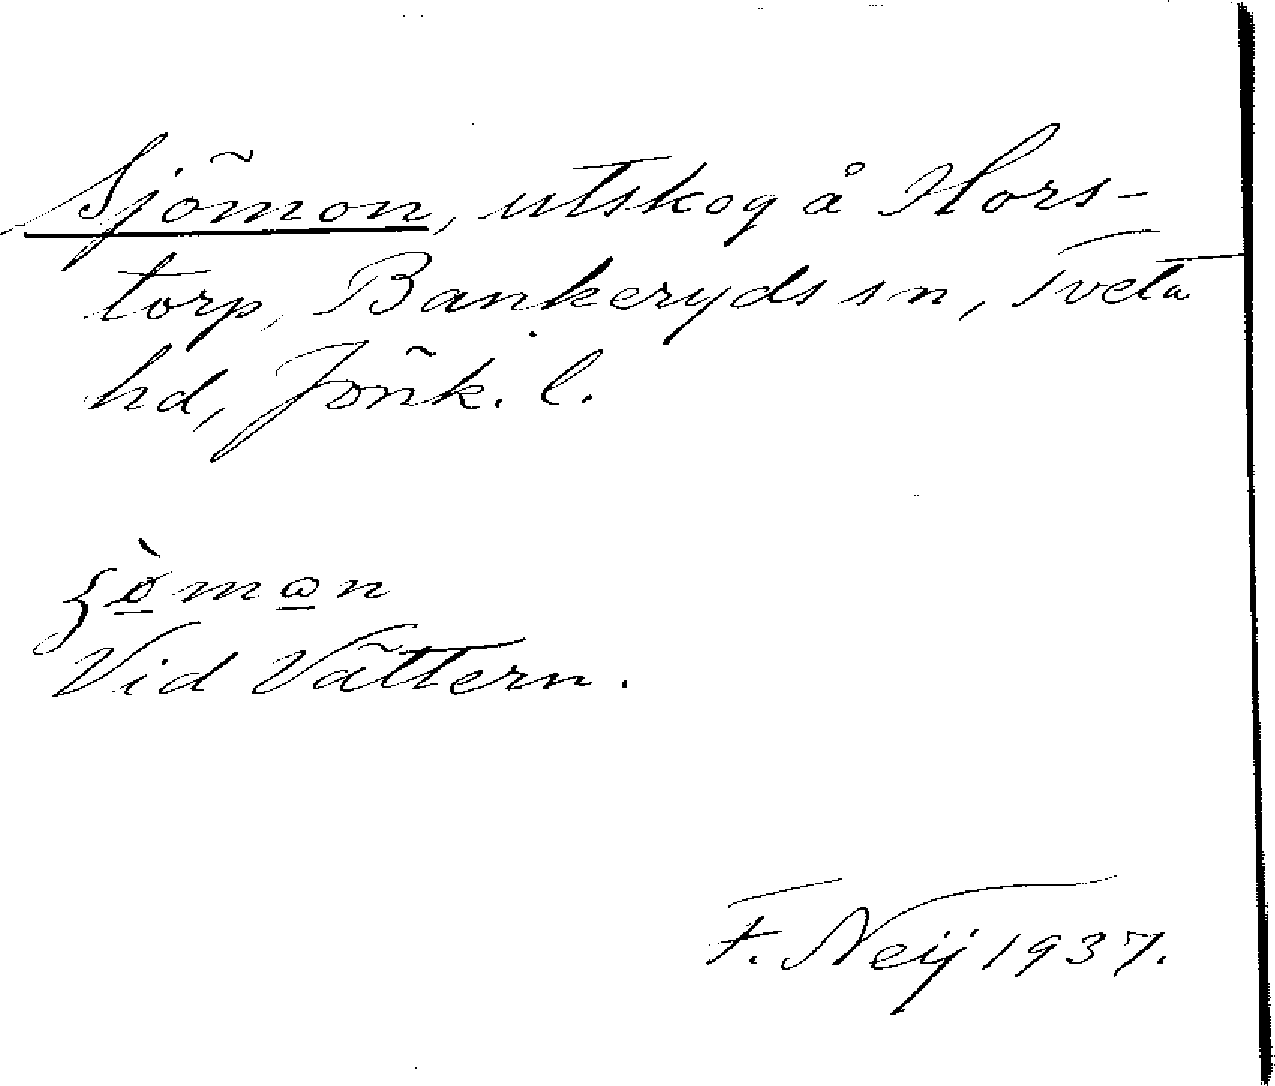 Sjömon, utskog å Hors-
torp, Bankeryds sn, Tveta
hd, Jönk. l.
ʂø̠̀mɷ̠n
Vid Vättern.
F. Neij 1937.